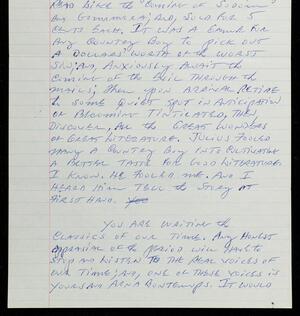 READ LIKE the "COMING OF SODOM
AND GOMMORRA; AND, SOLD FOR 5
CENTS EACH. IT WAS A GAME FOR
ANY COUNTRY BOY TO PICK OUT
A DOLLARS WORTH OF THE WORST
SIN; AND, ANXIOUSLY AWAIT the
COMING OF the EVIL THROUGH the
MAILS; Then UPON ARRIVAL RETIRE
to SOME QUIET SPOT IN ANTICIPATION
OF BECOMING TINTILATED, THEN
DISCOVER, ALL the GREAT WONDERS
OF GREAT LITERATURE. JULIUS FOOLED
MANY A COUNTRY BOY INTO CULTIVATING
A BETTER TASTE FOR GOOD LITERATURE
I KNOW. HE FOOLED ME. AND I
HEARD HIM TELL the STORY AT
FIRST HAND.
YOU ARE WRITING the
CLASSICS OF OUR TIME. ANY HONEST
APPRAISAL OF the PERIOD WILL HAVE to
STOP AND LISTEN TO the REAL VOICES OF
OUR TIME; AND, ONE OF THESE VOICES IS
YOURS AND ARNA BONTEMPS. IT WOULD